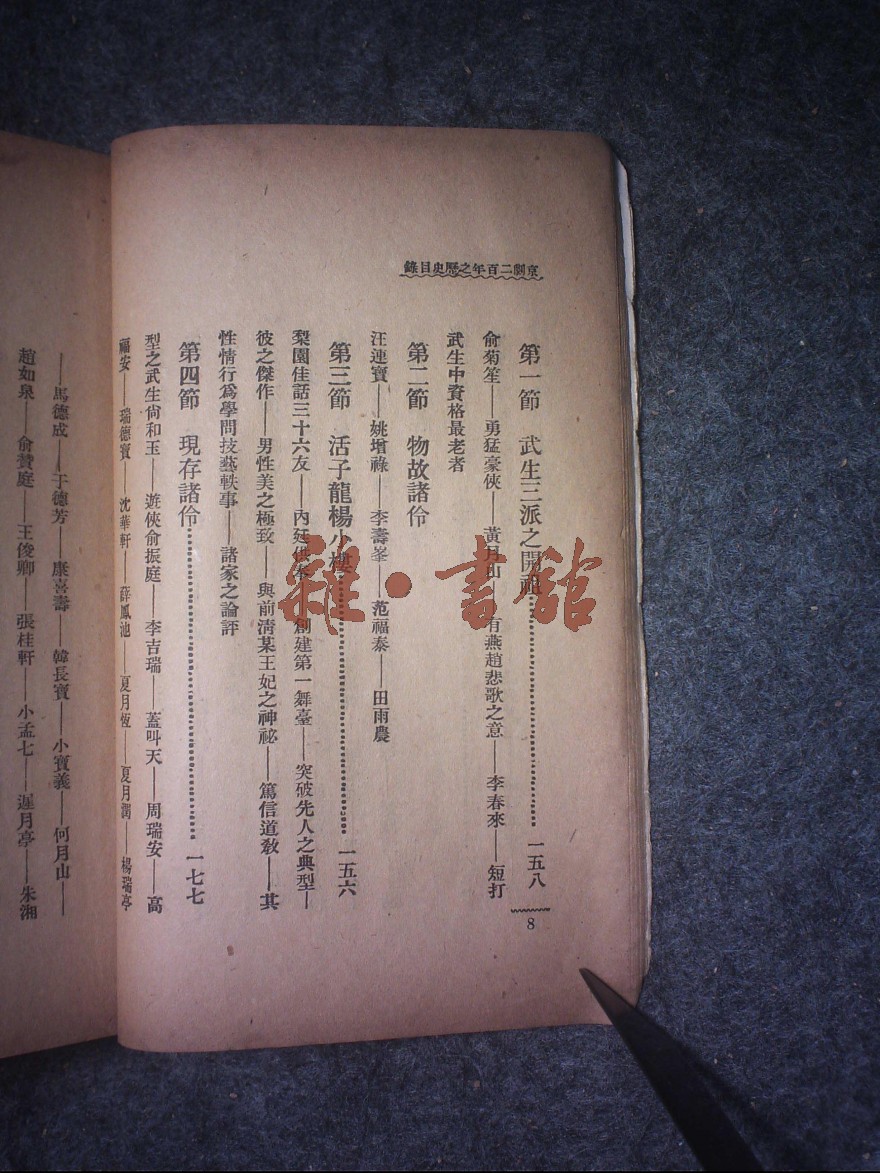 京劇二百年之歷史目錄
8
第一節 武生三派之開祖…………一五八
俞菊笙——勇猛豪俠——黃月山——有燕趙悲歌之意——李春來——短打
武生中資格最老者
第二節 物故諸伶
汪連寶——姚增祿——李壽峯——范福泰——田雨農
第三節 活子龍楊小樓…………一五六
梨園佳話三十六友——內廷供奉——創建第一舞臺——突破先人之典型——
彼之傑作——男性美之極致——與前清某王妃之神祕——篤信道教——其
性情行爲學問技藝軼事——諸家之論評
第四節 現存諸伶…………一七七
型之武生尙和玉——遊俠俞振庭——李吉瑞——蓋叫天——周瑞安——高
福安——瑞德寶——沈華軒——薛鳳池——夏月恆——夏月潤——楊瑞亭
——馬德成——于德芳——康喜壽——韓長寶——小寶義——何月山——
趙如泉——俞贊庭——王俊卿——張桂軒——小孟七——遲月亭——朱湘
雜·書館